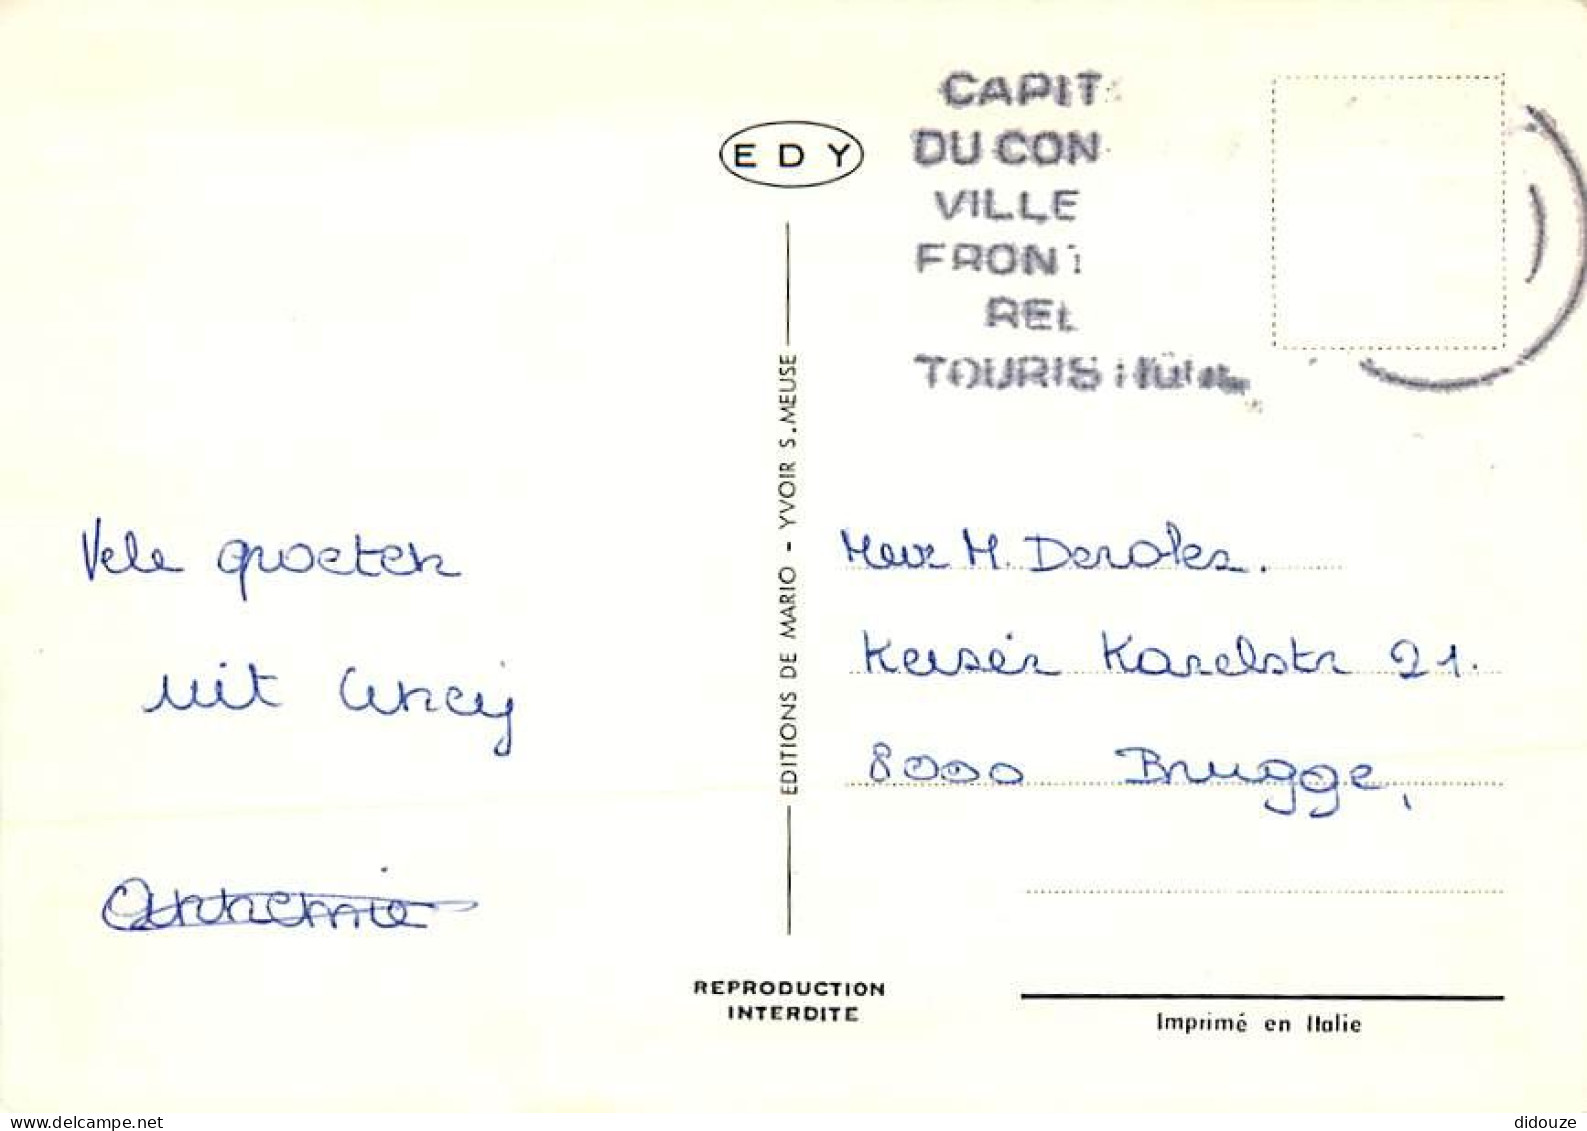 CAPIT
DU CON
VILLE
FRONT
REL
TOURIS
EDY
EDITIONS DE MARIO - YVOIR S.MEUSE
Vele groeten
uit Ciney
Annemie
Mevr M. Derolez.
Keiser Karelstr 21.
8000 Brugge,
REPRODUCTION
INTERDITE
Imprimé en Italie
delcampe.net
didouze